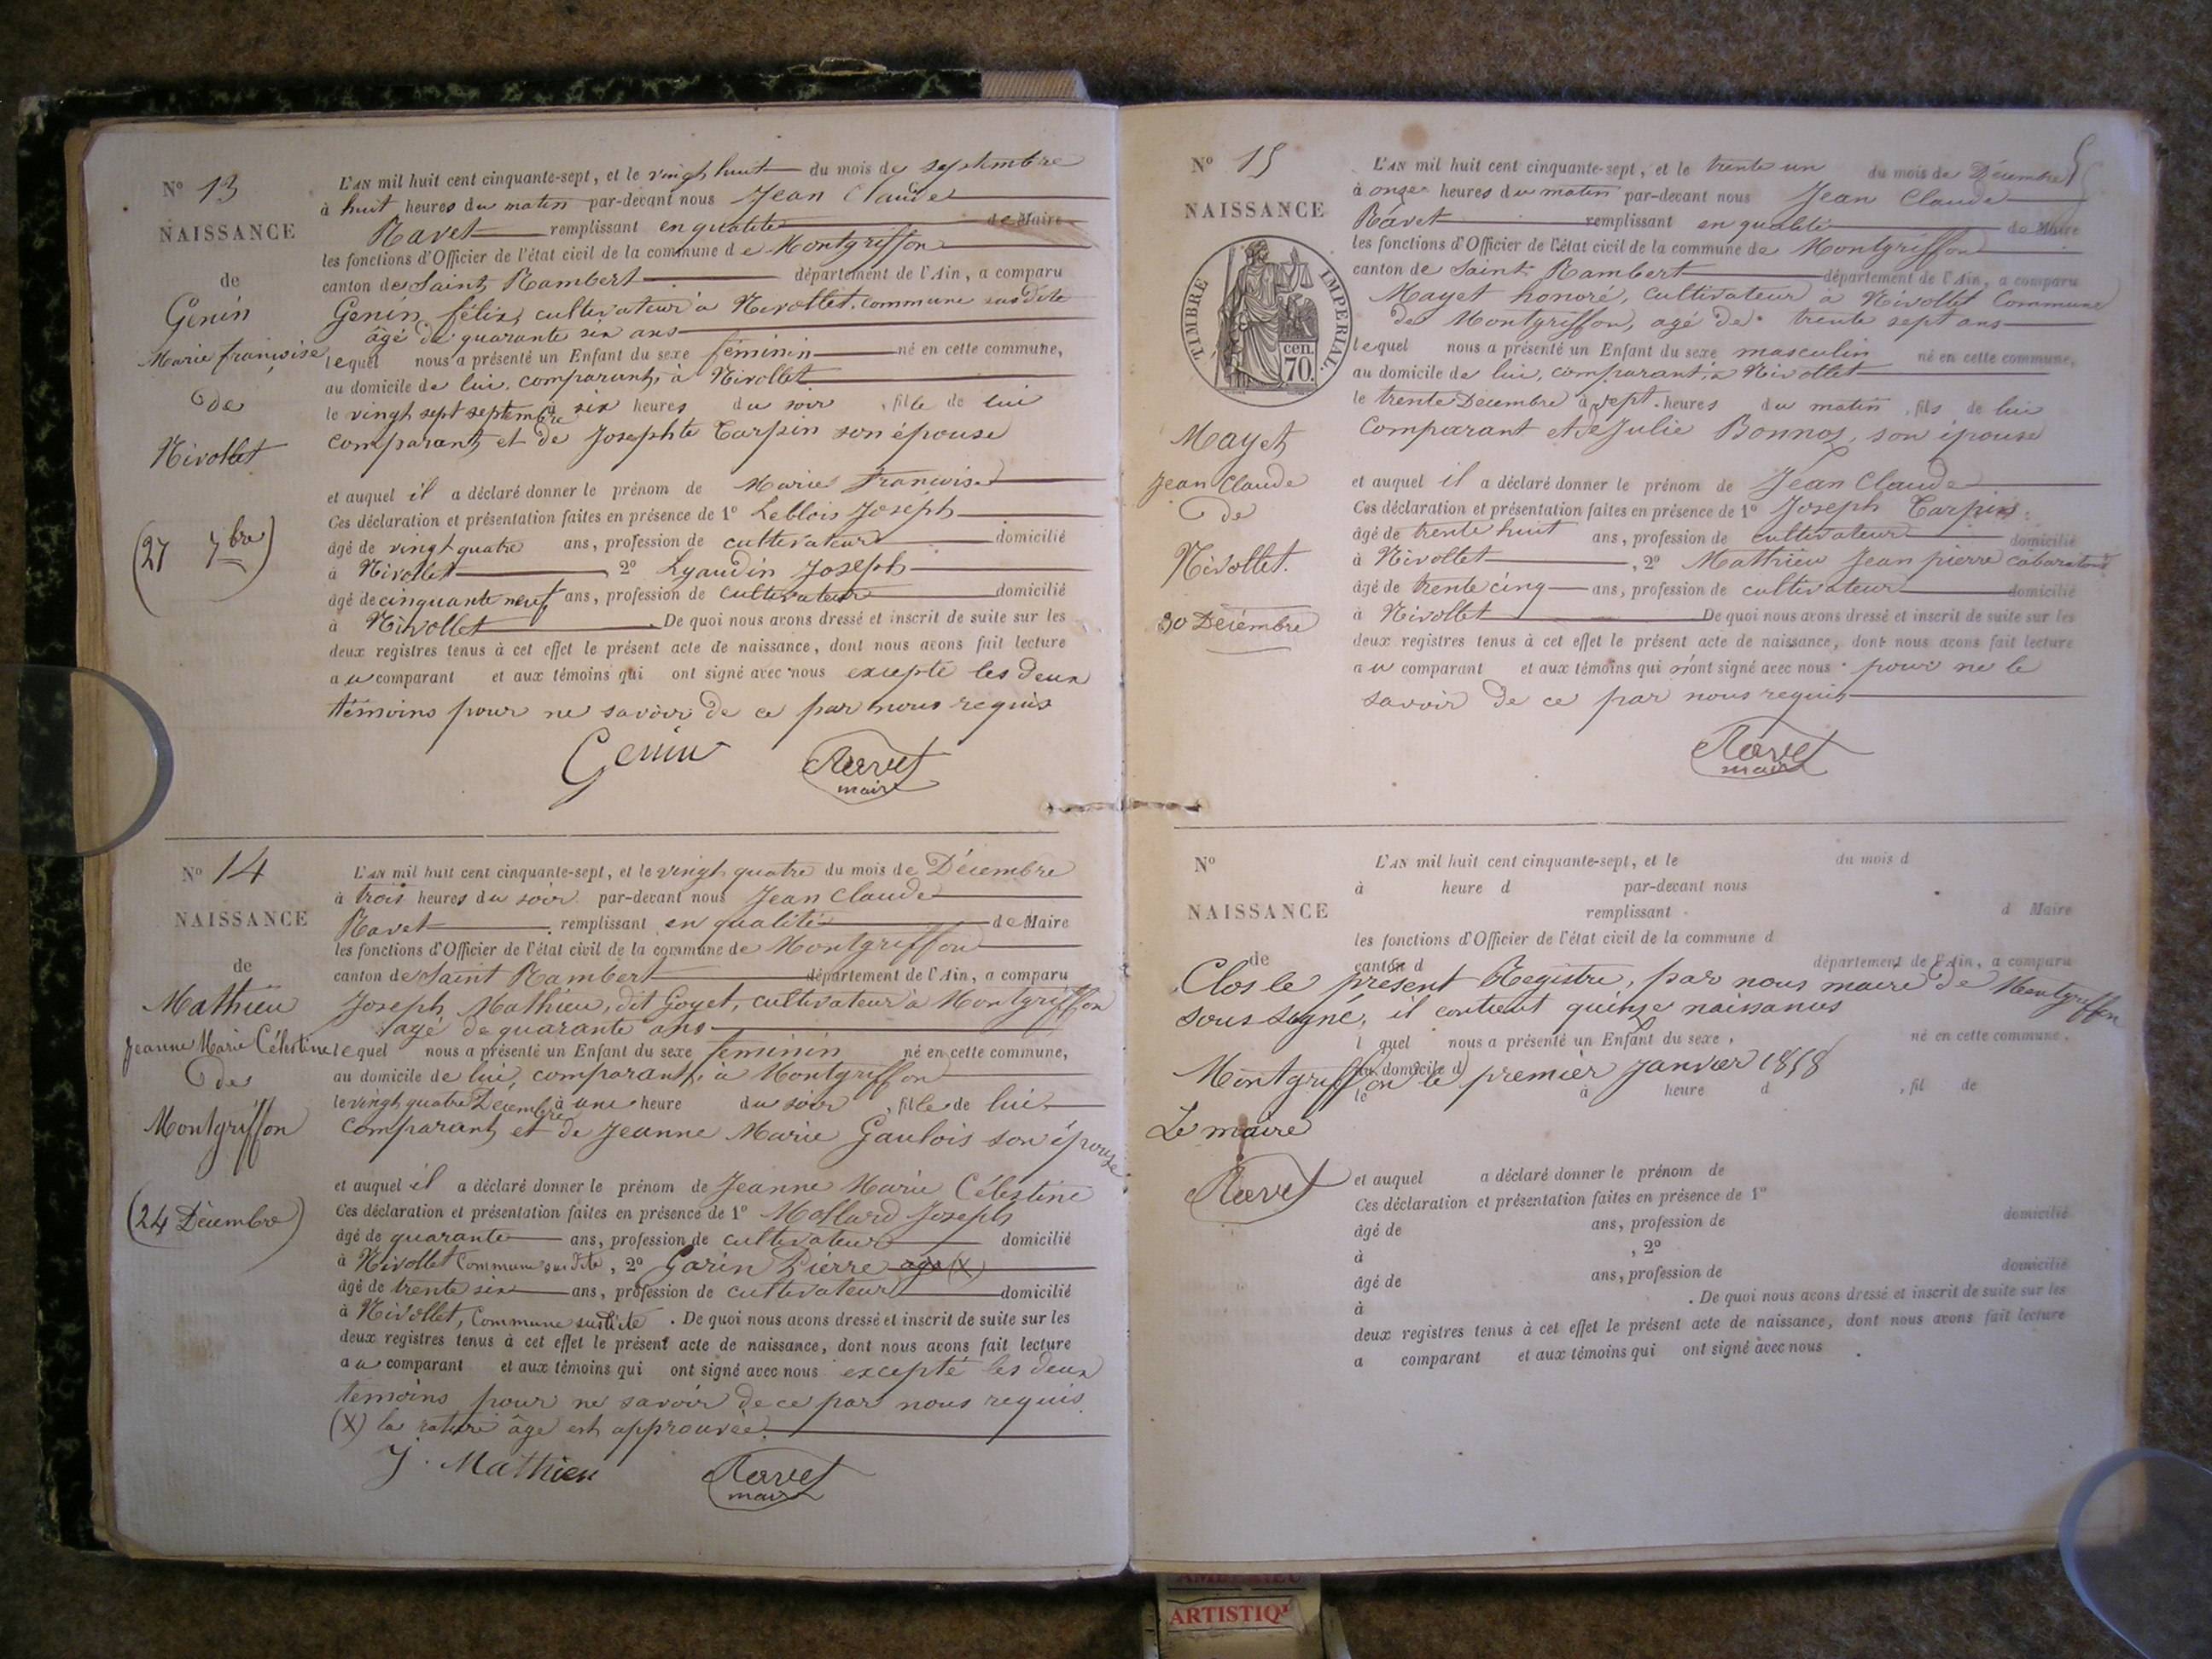 Nº 13
NAISSANCE
de
Genin
Marie françoise
de
Nivollet
(27 7bre)
L'AN mil huit cent cinquante-sept, et le vingt huit du mois de septembre
à huit heures du matin par-devant nous Jean Claude
Ravet remplissant en qualité de Maire
les fonctions d'Officier de l'état civil de la commune de Montgriffon
canton de Saint Rambert département de l'Ain, a comparu
Genin félix, cultivateur à Nivollet, commune susdite
âgé de quarante six ans
lequel nous a présenté un Enfant du sexe féminin né en cette commune,
au domicile de lui, comparant, à Nivollet
le vingt sept septembre à six heures du soir, fille de lui
comparant, et de Josephte Tarpin son épouse
et auquel il a déclaré donner le prénom de Marie françoise
Ces déclaration et présentation faites en présence de 1º Leblois Joseph
âgé de vingt quatre ans, profession de cultivateur domicilié
à Nivollet, 2º Lyaudin Joseph
âgé de cinquante neuf ans, profession de cultivateur domicilié
à Nivollet. De quoi nous avons dressé et inscrit de suite sur les
deux registres tenus à cet effet le présent acte de naissance, dont nous avons fait lecture
au comparant et aux témoins qui ont signé avec nous excepté les deux
témoins pour ne savoir de ce par nous requis
Genin Ravet
maire
Nº 14
NAISSANCE
de
Mathieu
Jeanne Marie Célestine
de
Montgriffon
(24 Décembre)
L'AN mil huit cent cinquante-sept, et le vingt quatre du mois de Décembre
à trois heures du soir par-devant nous Jean Claude
Ravet remplissant en qualité de Maire
les fonctions d'Officier de l'état civil de la commune de Montgriffon
canton de Saint Rambert département de l'Ain, a comparu
Joseph Mathieu, dit Goyet, cultivateur à Montgriffon
âgé de quarante ans
lequel nous a présenté un Enfant du sexe féminin né en cette commune,
au domicile de lui, comparant, à Montgriffon
le vingt quatre Décembre à une heure du soir, fille de lui
comparant, et de Jeanne Marie Gaulois son épouse
et auquel il a déclaré donner le prénom de Jeanne Marie Célestine
Ces déclaration et présentation faites en présence de 1º Mollard Joseph
âgé de quarante ans, profession de cultivateur domicilié
à Nivollet Commune susdite, 2º Garin Pierre âgé (X)
âgé de trente six ans, profession de cultivateur domicilié
à Nivollet, Commune susdite. De quoi nous avons dressé et inscrit de suite sur les
deux registres tenus à cet effet le présent acte de naissance, dont nous avons fait lecture
au comparant et aux témoins qui ont signé avec nous excepté les deux
témoins pour ne savoir de ce par nous requis.
(X) la rature âgé est approuvée.
J. Mathieu Ravet
maire
Nº 15
NAISSANCE
TIMBRE IMPERIAL
70 cen.
Mayet
Jean Claude
de
Nivollet.
30 Décembre
5
L'AN mil huit cent cinquante-sept, et le trente un du mois de Décembre
à onze heures du matin par-devant nous Jean Claude
Ravet remplissant en qualité de Maire
les fonctions d'Officier de l'état civil de la commune de Montgriffon
canton de Saint-Rambert département de l'Ain, a comparu
Mayet honoré, cultivateur à Nivollet Commune
de Montgriffon, agé de trente sept ans
lequel nous a présenté un Enfant du sexe masculin né en cette commune,
au domicile de lui, comparant, à Nivollet
le trente Décembre à sept heures du matin, fils de lui
comparant et de Julie Bonnoz, son épouse
et auquel il a déclaré donner le prénom de Jean Claude
Ces déclaration et présentation faites en présence de 1º Joseph Tarpin
âgé de trente huit ans, profession de cultivateur domicilié
à Nivollet, 2º Mathieu Jean pierre
âgé de trente cinq ans, profession de cultivateur domicilié
à Nivollet De quoi nous avons dressé et inscrit de suite sur les
deux registres tenus à cet effet le présent acte de naissance, dont nous avons fait lecture
au comparant et aux témoins qui n'ont signé avec nous pour ne le
savoir de ce par nous requis
Ravet
maire
Nº
NAISSANCE
de
L'AN mil huit cent cinquante-sept, et le du mois d
à heure d par-devant nous
remplissant d Maire
les fonctions d'Officier de l'état civil de la commune d
canton d département de l'Ain, a comparu
Clos le présent Registre, par nous maire de Montgriffon
sous signé, il contient quinze naissances
l quel nous a présenté un Enfant du sexe, né en cette commune,
au domicile d
Montgriffon le premier janvier 1858
le à heure d, fil de
Le maire
Ravet
et auquel a déclaré donner le prénom de
Ces déclaration et présentation faites en présence de 1º
âgé de ans, profession de domicilié
à, 2º
âgé de ans, profession de domicilié
à. De quoi nous avons dressé et inscrit de suite sur les
deux registres tenus à cet effet le présent acte de naissance, dont nous avons fait lecture
a comparant et aux témoins qui ont signé avec nous.
ARTISTIQ